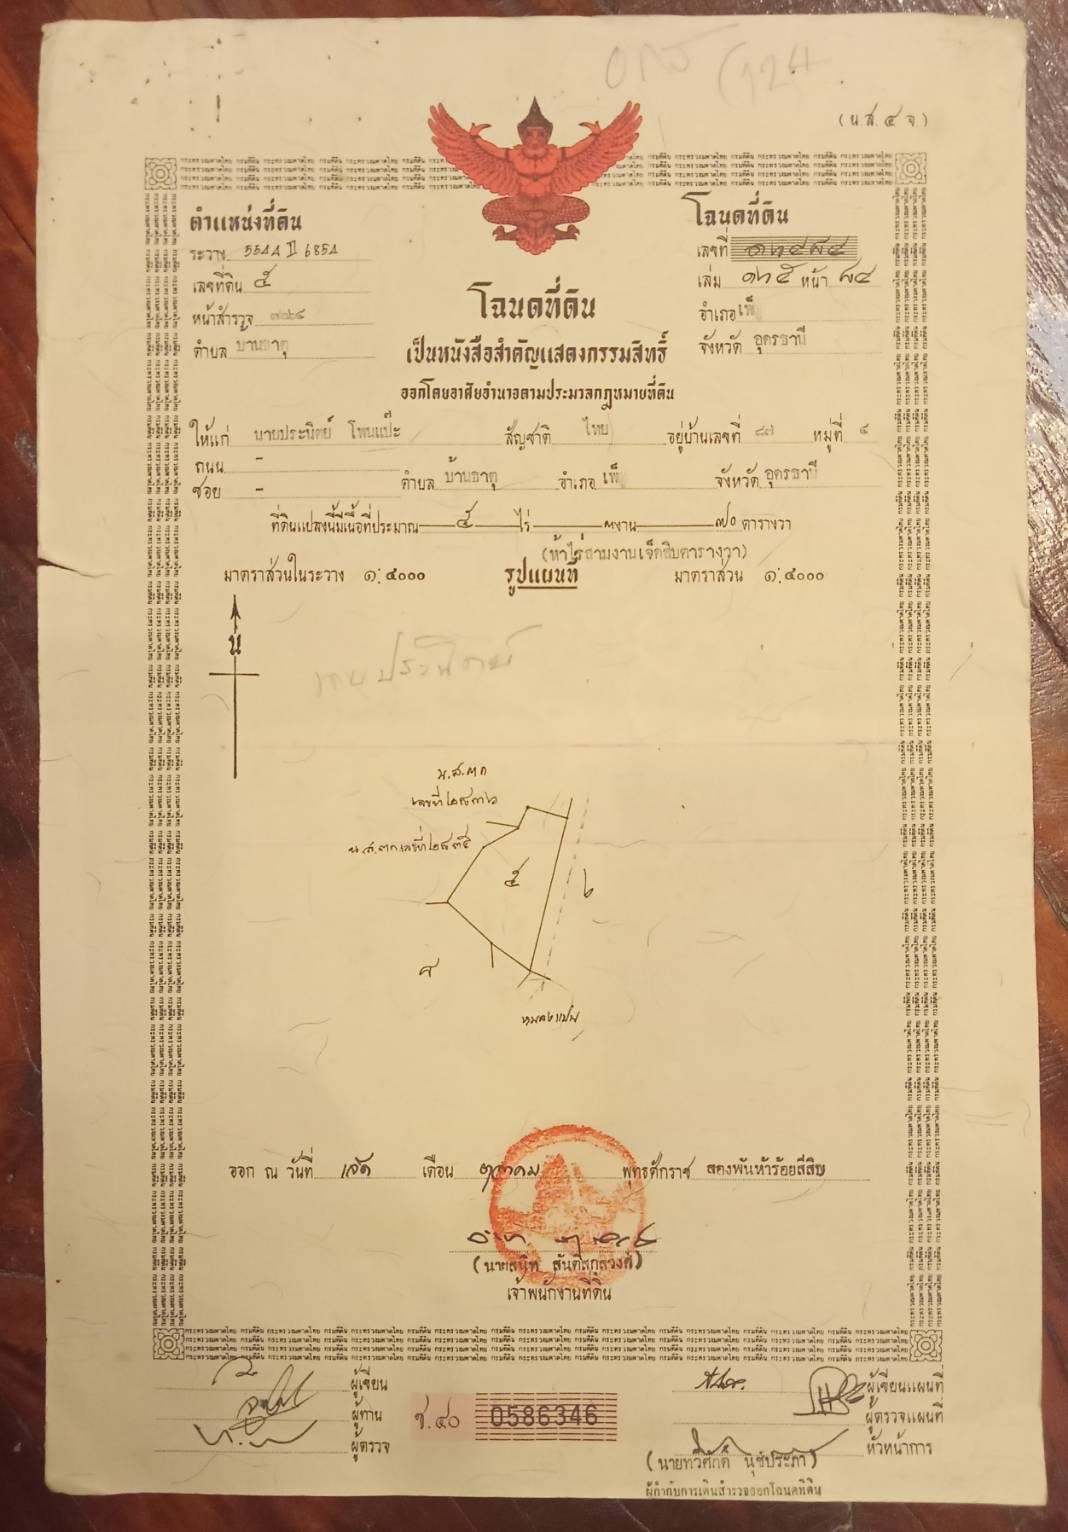 (น.ส. ๔ จ.)
ตำแหน่งที่ดิน
ระวาง 5544 II 6854
เลขที่ดิน ๕
หน้าสำรวจ
ตำบล บ้านธาตุ
โฉนดที่ดิน
เลขที่
เล่ม ๑๒๕ หน้า ๘๔
อำเภอ เพ็ญ
จังหวัด อุดรธานี
โฉนดที่ดิน
เป็นหนังสือสำคัญแสดงกรรมสิทธิ์
ออกโดยอาศัยอำนาจตามประมวลกฎหมายที่ดิน
ให้แก่ นายประนิตย์ โพนแป๊ะ สัญชาติ ไทย อยู่บ้านเลขที่ ๘๗ หมู่ที่
ถนน -
ซอย - ตำบล บ้านธาตุ อำเภอ เพ็ญ จังหวัด อุดรธานี
ที่ดินแปลงนี้มีเนื้อที่ประมาณ ๕ ไร่ ๓ งาน ๗๐ ตารางวา
(ห้าไร่สามงานเจ็ดสิบตารางวา)
มาตราส่วนในระวาง ๑:๔๐๐๐ รูปแผนที่ มาตราส่วน ๑:๔๐๐๐
น
น.ส.๓ก
เลขที่
น.ส.๓ก เลขที่
๕
๖
ออก ณ วันที่ เจ็ด เดือน ตุลาคม พุทธศักราช สองพันห้าร้อยสี่สิบ
(นายสนิท สันติสกุลวงศ์)
เจ้าพนักงานที่ดิน
ผู้เขียน
ผู้ทาน
ผู้ตรวจ
ช.๔๐ 0586346
ผู้เขียนแผนที่
ผู้ตรวจแผนที่
หัวหน้าการ
(นายทวีศักดิ์ นุชประภา)
ผู้กำกับการเดินสำรวจออกโฉนดที่ดิน